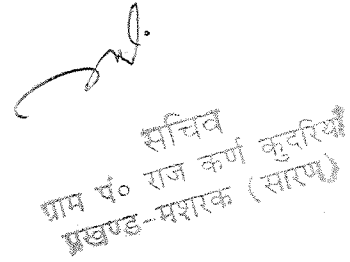 सचिव
ग्राम पं० राज कर्ण कुदरिया
प्रखण्ड-मशरक (सारण)